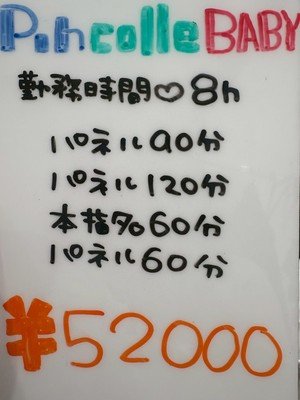 Pinkcolle BABY
勤務時間♡8h
パネル90分
パネル120分
本指名60分
パネル60分
¥52000